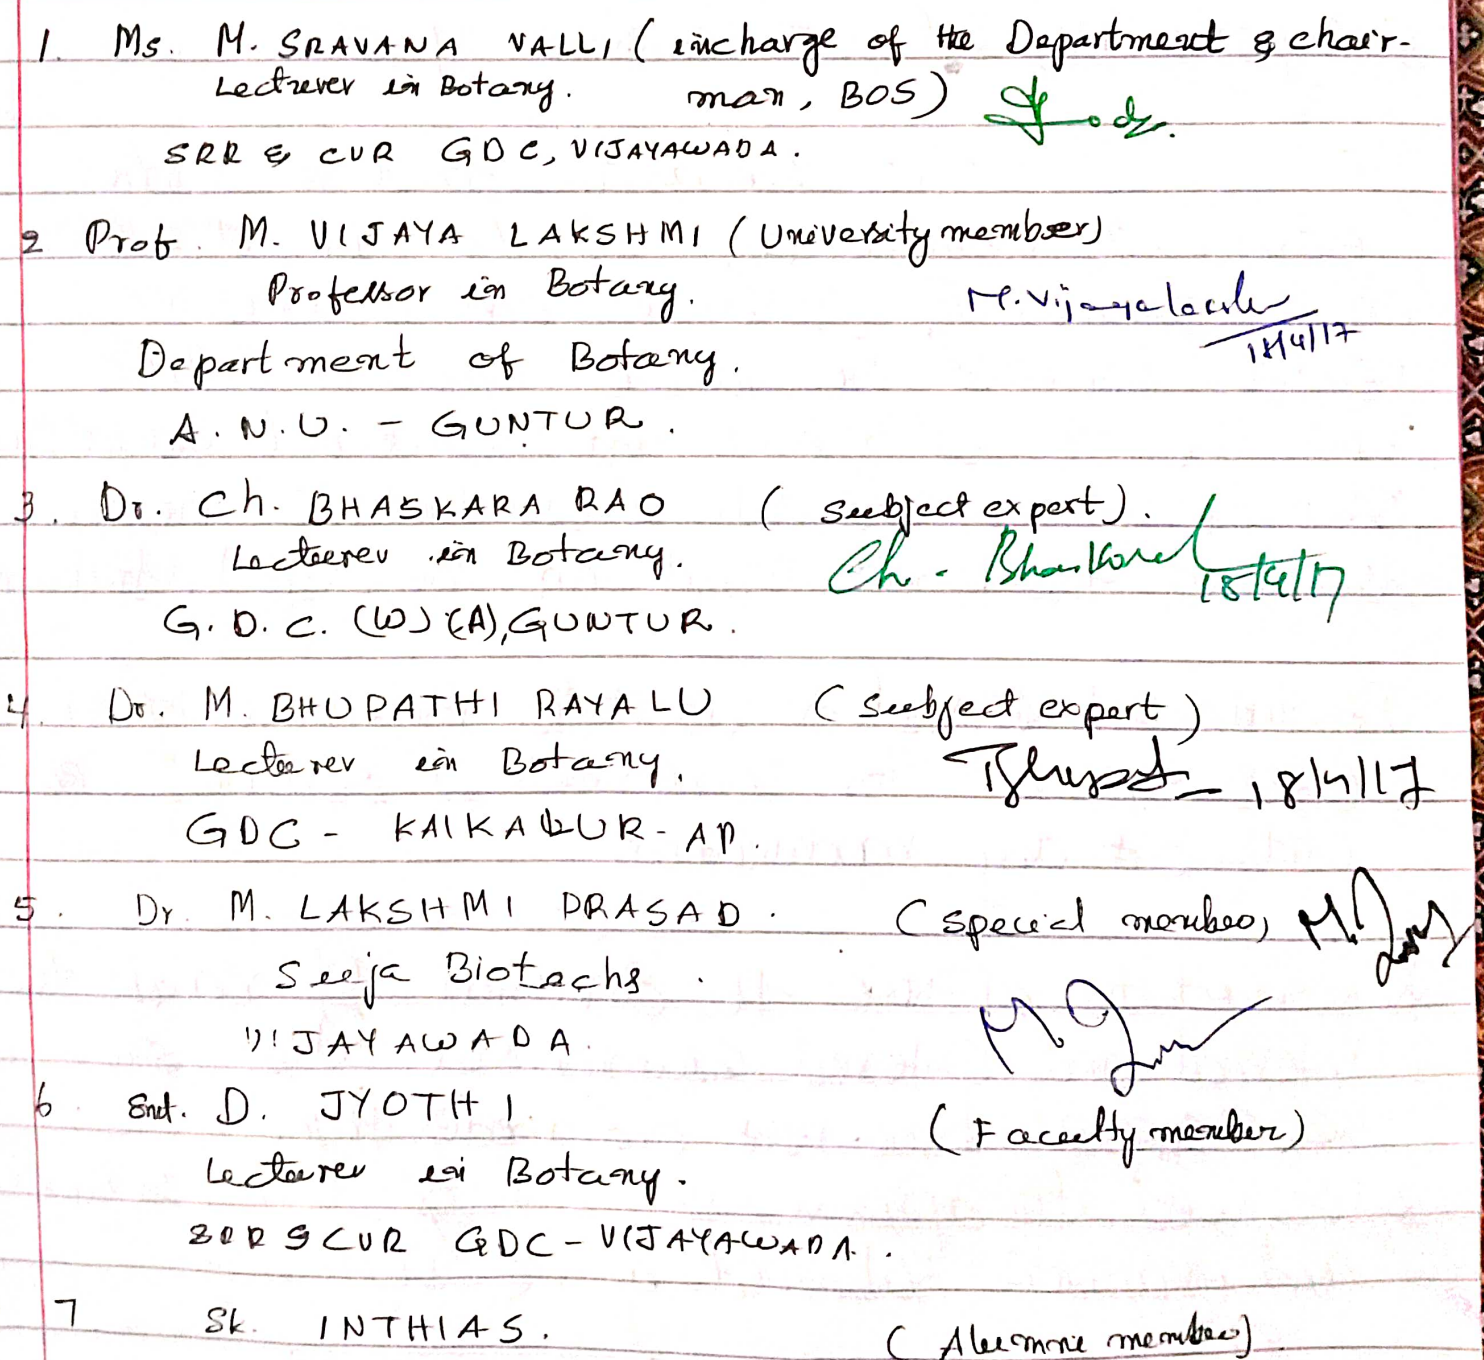 1. Ms. M. SRAVANA VALLI (incharge of the Department & chair-
Lecturer in Botany. man, BOS)
SRR & CVR GDC, VIJAYAWADA.
2 Prof. M. VIJAYA LAKSHMI (University member)
Professor in Botany. M. Vijayalakshmi
18/4/17
Department of Botany.
A.N.U. - GUNTUR.
3. Dr. Ch. BHASKARA RAO (Subject expert).
Lecturer in Botany. Ch. Bhaskara 18/4/17
G.D.C. (W) (A), GUNTUR.
4. Dr. M. BHUPATHI RAYALU (Subject expert)
Lecturer in Botany. 18/4/17
GDC - KAIKALUR - AP.
5. Dr. M. LAKSHMI PRASAD. (Special member)
Seeja Biotechs.
VIJAYAWADA.
6. Smt. D. JYOTHI (Faculty member)
Lecturer in Botany.
SRR & CVR GDC - VIJAYAWADA.
7 Sk. INTHIAS. (Alumni member)